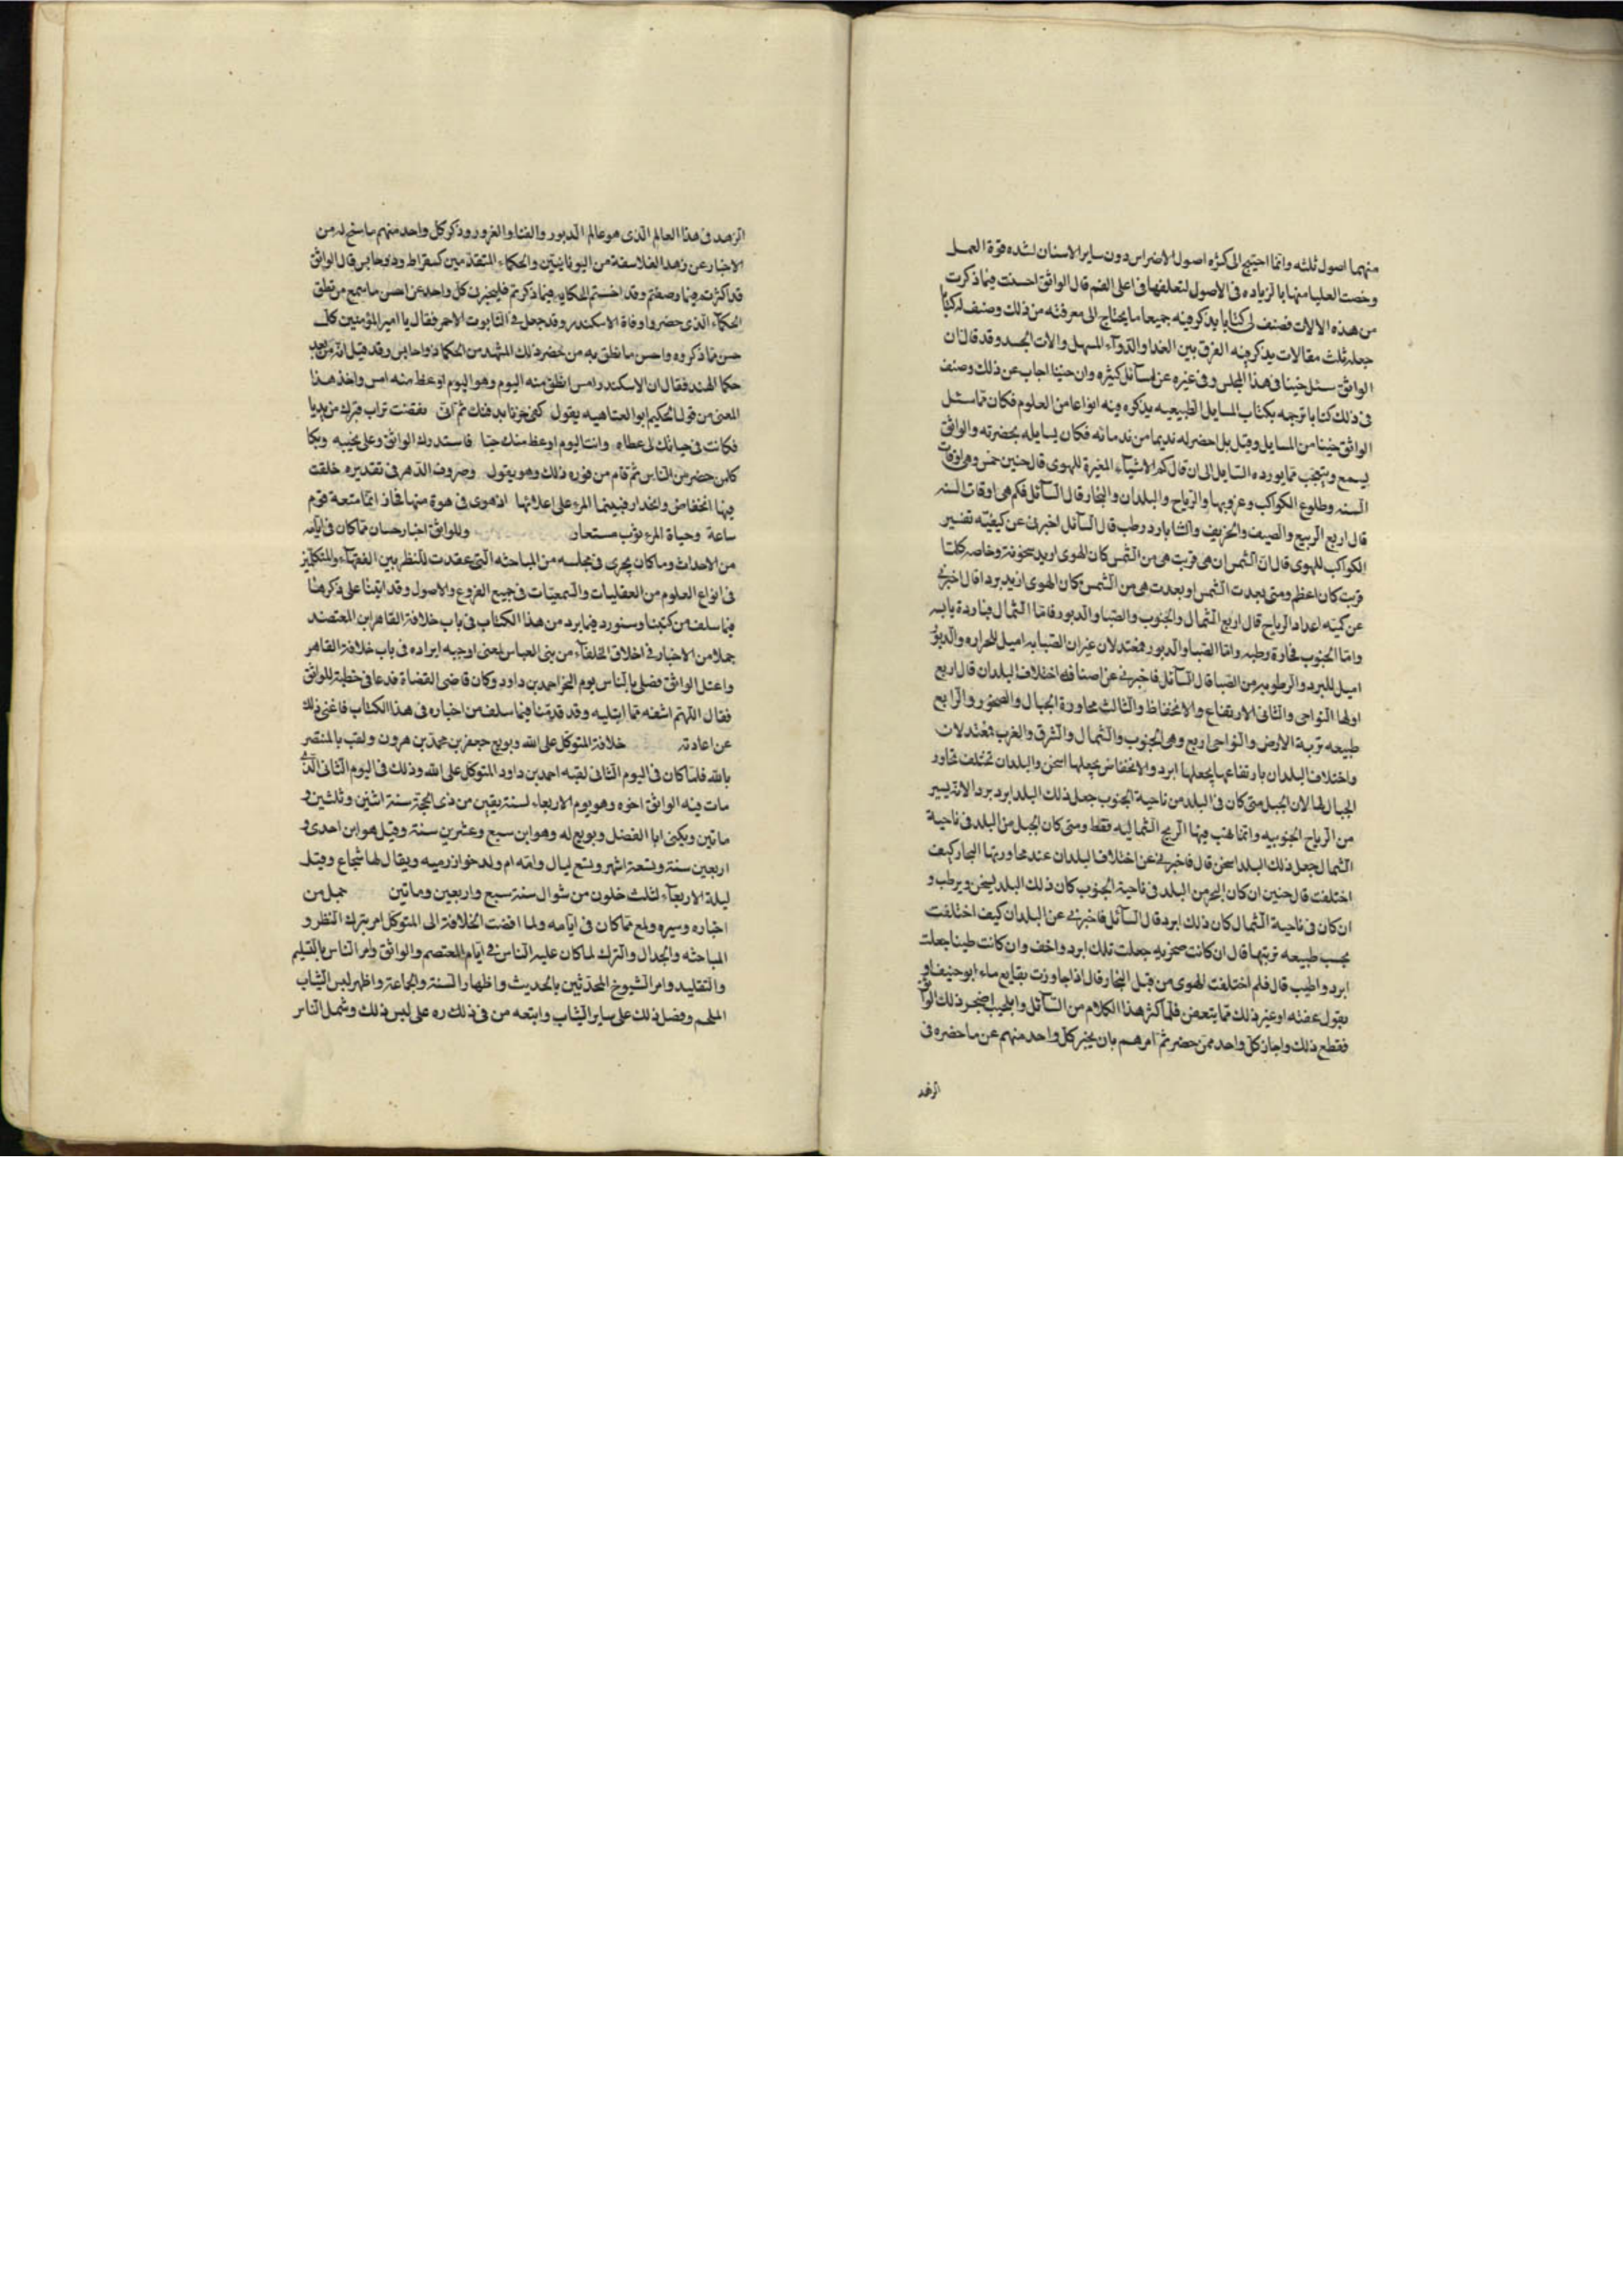 منهما اصول ثلثه وانما احتيج الى كثره اصول الاضراس دون ساير الاسنان لشده قوة العمل
وخصت العليا منها بالزياده فى الاصول لتعلقها فى اعلى الفم قال الواثق احسنت فيما ذكرت
من هذه الالات فصنف لى كتابا يذكر فيه جميعا ما يحتاج الى معرفته من ذلك وصنف له كتابا
جعله ثلث مقالات يذكر فيه الفرق بين الغدا والدوآء المسهل والات الجسد وقد قال ان
الواثق سئل حنينا فى هذا المجلس وفى غيره عن مسآئل كثيره وان حنينا اجاب عن ذلك وصنف
فى ذلك كتابا ترجمه بكتاب المسايل الطبيعيه يذكره فيه انواعا من العلوم فكان مما سئل
الواثق حنينا من المسايل وقيل بل احضر له نديما من ندمائه فكان يسايله بحضرته والواثق
يسمع ويتعجب مما يورده السايل الى ان قال كم الاشيآء المغيرة للهوى قال حنين خمس وهى اوقات
السنه وطلوع الكواكب وغروبها والرياح والبلدان والبخار قال السآئل فكم هى اوقات السنه
قال اربع الربيع والصيف والخريف والشتا بارد رطب قال السآئل اخبرنى عن كيفيته تغيير
الكواكب للهوى قال ان الشمس ان هى قربت هى من الشمس كان الهوى ازيد سخونة وخاصه كلما
قربت كان اعظم ومتى بعدت الشمس او بعدت هى من الشمس كان الهوى ازيد بردا قال اخبرنى
عن كميه اعداد الرياح قال اربع الشمال والجنوب والصبا والدبور فاما الشمال فباردة يابسه
واما الجنوب فحارة رطبه واما الصبا والدبور فمعتدلان غير ان الصبا به اميل للحراره والدبور
اميل للبرد والرطوبه من الصبا قال السآئل فاخبرنى عن اصنافه اختلاف البلدان قال اربع
اولها النواحى والثانى الارتفاع والانحفاظ والثالث مجاورة الجبال والصخور والرابع
طبيعه تربة الارض والنواحى اربع وهى الجنوب والشمال والشرق والغرب فمعتدلان
واختلاف البلدان بارتفاعها يجعلها ابرد والانخفاض يجعلها اسخن والبلدان تختلف مجاور
الجبال لها لان الجبل متى كان فى البلد من ناحية الجنوب جعل ذلك البلد ابرد بردا لانه يسير
من الرياح الجنوبيه وانما تهب فيها الريح الشماليه فقط ومتى كان الجبل من البلد فى ناحية
الشمال جعل ذلك البلد اسخن قال فاخبرنى عن اختلاف البلدان عند مجاورتها البحار كيف
اختلفت قال حنين ان كان البحر من البلد فى ناحية الجنوب كان ذلك البلد يسخن ويرطب و
ان كان فى ناحية الشمال كان ذلك ابرد قال السآئل فاخبرنى عن البلدان كيف اختلفت
بحسب طبيعه تربتها قال ان كانت صخريه جعلت تلك ابرد واخف وان كانت طينا جعلت
ابرد واطيب قال فلم اختلفت الهوى من قبل البخار قال اذا جاوزت بقايع ماء او جيفا او
بقول عفنه او غير ذلك مما يتعفن فلما كثر هذا الكلام من السآئل والمجيب اضجر ذلك الواثق
فقطع ذلك واجاز كل واحد ممن حضر ثم امرهم بان يخبر كل واحد منهم عن ما حضره فى
الزهد
الزهد فى هذا العالم الذى هو عالم الدبور والفنا والغرور وذكر كل واحد منهم ما سنح له من
الاخبار عن زهد الفلاسفة من اليونانيين والحكماء المتقدمين كسقراط وديوجانس قال الواثق
قد اكثرت فيما وصفتم وقد احسنتم الحكايه فيما ذكرتم فليخبرنى كل واحد عن احسن ما سمع من نطق
الحكمآء الذى حضروا وفاة الاسكندر وقد جعل فى التابوت الاحمر فقال يا امير المؤمنين كل
حسن مما ذكروه واحسن ما نطق به من حضر ذلك المشهد من الحكما ذواجانس وقد قيل انه من بعد
حكما الهند فقال ان الاسكندر امس انطق منه اليوم وهو اليوم اوعظ منه امس واخذ هذا
المعنى من قول الحكيم ابو العتاهيه يقول كفى حزنا بدفنك ثم انى نفضت تراب قبرك من يديا
فكانت فى حياتك لى عظاه وانت اليوم اوعظ منك حيا فاستدرك الواثق وعلى نحيبه وبكا
كل من حضر من الناس ثم قام من فوره ذلك وهو يقول وصروف الدهر فى تقديره خلقت
فيها انخفاض وانحدار فبينما المرء على اعلائها اذ هوى فى هوة منها فحاذ انما متعة قوم
ساعة وحياة المرء ثوب مستعار وللواثق اخبار حسان مما كان فى ايامه
من الاحداث وما كان يجرى فى مجلسه من المباحثه التى عقدت للنظر بين الفقهآء والمتكلمين
فى انواع العلوم من العقليات والسمعيات فى جميع الفروع والاصول وقد اتينا على ذكرها
فيما سلف من كتبنا وسنورد فيما يرد من هذا الكتاب فى باب خلافة القاهر ابن المعتضد
جملا من الاخبار فى اخلاق الخلفآء من بنى العباس لمعنى اوجبه ايراده فى باب خلافة القاهر
واعتل الواثق فصلى بالناس يوم النحر احمد بن داود وكان قاضى القضاة فدعا فى خطبته للواثق
فقال اللهم اشفه مما ابتليه وقد قدمنا فيما سلف من اخباره فى هذا الكتاب فاغنى ذلك
عن اعادته خلافة المتوكل على الله وبويع جعفر بن محمد بن هرون ولقب بالمنتصر
بالله فلما كان فى اليوم الثانى لقبه احمد بن داود المتوكل على الله وذلك فى اليوم الثانى الذى
مات فيه الواثق اخوه وهو يوم الاربعاء لستة بقين من ذى الحجة سنة اثنين وثلثين و
ماتين ويكنى ابا الفضل وبويع له وهو ابن سبع وعشرين سنة وقيل هو ابن احدى و
اربعين سنة وتسعة اشهر وتسع ليال وامه ام ولد خوارزميه ويقال لها شجاع وقتل
ليلة الاربعآء لثلث خلون من شوال سنة سبع واربعين وماتين جمل من
اخباره وسيره ولمع مما كان فى ايامه ولما افضت الخلافة الى المتوكل امر بترك النظر و
المباحثه والجدال والترك لما كان عليه الناس فى ايام المعتصم والواثق وامر الناس بالتسليم
والتقليد وامر الشيوخ المحدثين بالحديث واظهار السنة والجماعة واظهر لبس الثياب
الملحم وفضل ذلك على ساير الثياب واتبعه من فى ذلك ره على لبس ذلك وشمل الناس